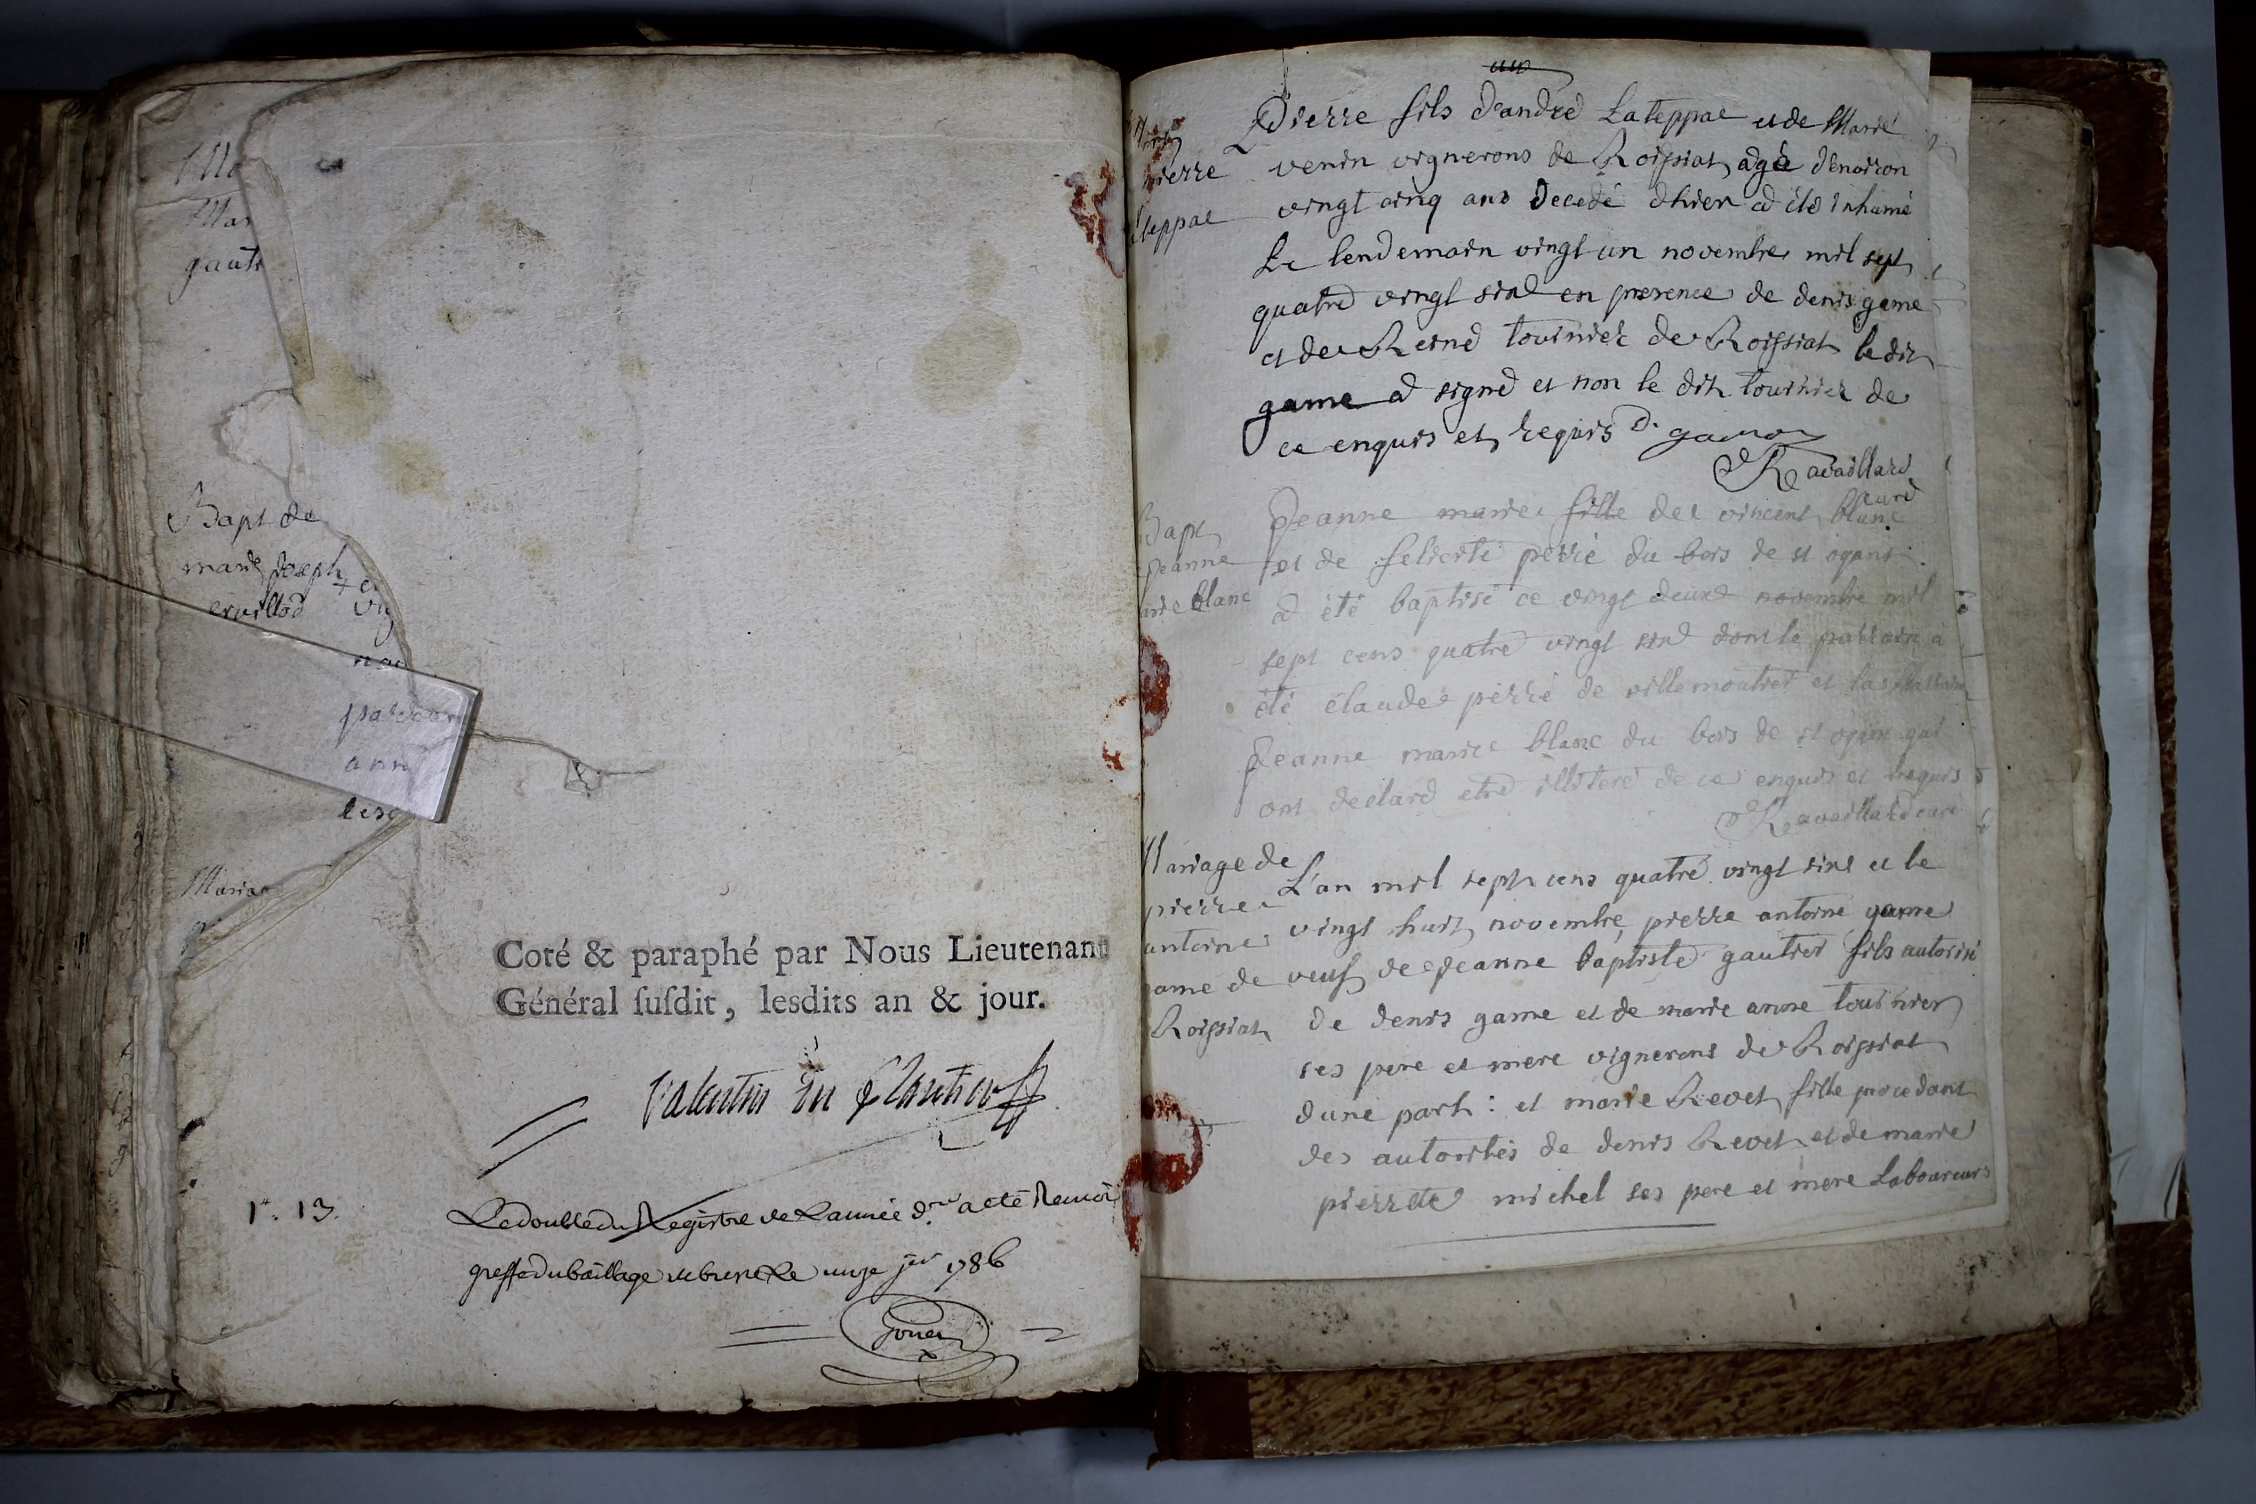 Ma
Mar
gaut
Bapt de
marie joseph
ervillod
+ e
vig
no
parrain
ann
lesq
Maria
Coté & paraphé par Nous Lieutenant
Général ſuſdit, leſdits an & jour.
Valentin du Plantier
1er. 13.
Le double du Registre de L'année dre a eté Remis
greffe du bailliage de bresse Le unze jer 1786
Pierre
teppae
un
Pierre fils d'andré Lateppae et de Marie
venin vignerons de Roissiat agé denviron
vingt cinq ans decedé dhier a été inhumé
Le lendemain vingt un novembre mil sept
quatre vingt six en presence de denis game
et de René tournier de Roissiat le dit
game a signé et non le dit tournier de
ce enquis et requis D. game
Ravaillard
curé
Bapt
jeanne
marie blanc
Jeanne marie fille de vincent blanc
et de felicité perré du bois de st oyant
a été baptisé ce vingt deux novembre mil
sept cens quatre vingt six dont le parrain a
été claude perré de villemoutret et la marraine
jeanne marie blanc du bois de st oyant qui
ont declaré etre illiteré de ce enquis et requis
Ravaillard curé
Mariage de
pierre
antoine
game de
Roissiat
L'an mil sept cens quatre vingt six et le
vingt huit novembre pierre antoine game
veuf de jeanne baptiste gautier fils autorisé
de denis game et de marie anne tournier
ses pere et mere vignerons de Roissiat
dune part : et marie Revet fille procedant
des autorités de denis Revet et de marie
pierrette michel ses pere et mere Laboureurs